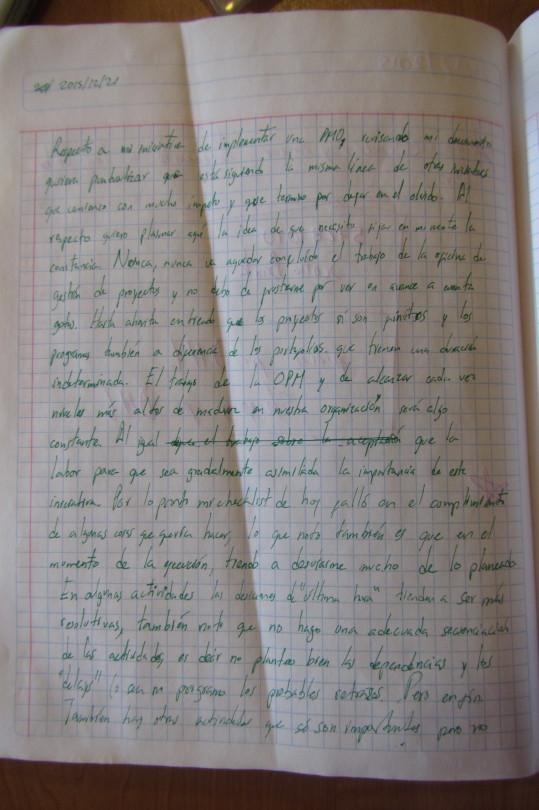 2015/12/21
Respecto a mi iniciativa de implementar una PMO, revisando mi documento
quisiera puntualizar que está siguiendo la misma línea de otras iniciativas
que comienzo con mucho ímpetu y que termino por dejar en el olvido. Al
respecto quiero plasmar aquí la idea de que necesito fijar en mi mente la
constancia. Nunca, nunca va a quedar concluido el trabajo de la oficina de
gestión de proyectos y no debo de frustrarme por ver en avance a cuenta
gotas. Hasta ahorita entiendo que los proyectos sí son finitos y los
programas también a diferencia de los portafolios que tienen una duración
indeterminada. El trabajo de la OPM y de alcanzar cada vez
niveles más altos de madurez en nuestra organización será algo
constante. Al igual que la
labor para que sea gradualmente asimilada la importancia de esta
iniciativa. Por lo pronto mi checklist de hoy falló en el cumplimiento
de algunas cosas que quería hacer, lo que noto también es que en el
momento de la ejecución, tiendo a desviarme mucho de lo planeado.
En algunas actividades las de "última hora" tienden a ser más
resolutivas, también noto que no hago una adecuada secuenciación
de las actividades, es decir no planteo bien las dependencias y los
"delays" (o sea no programo los probables retrasos. Pero en fin
También hay otras actividades que sé son importantes pero no